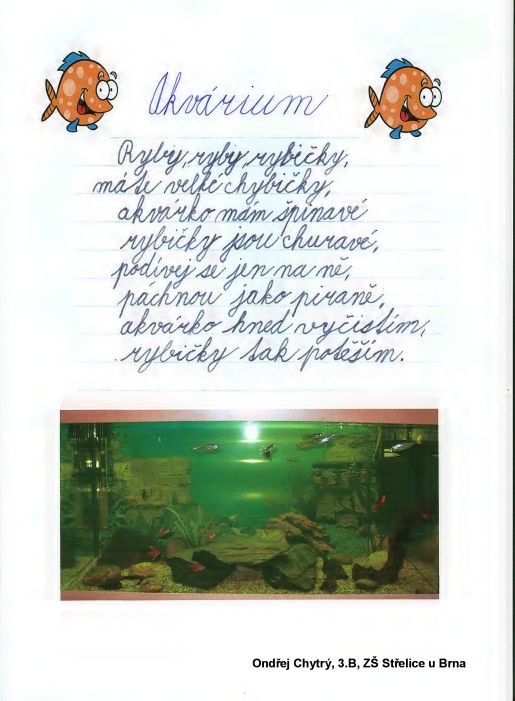 Akvárium
Ryby, ryby, rybičky,
máte velké chybičky,
akvárko mám špinavé
rybičky jsou churavé,
podívej se jen na ně,
páchnou jako piraně,
akvárko hned vyčistím,
rybičky tak potěším.
Ondřej Chytrý, 3.B, ZŠ Střelice u Brna